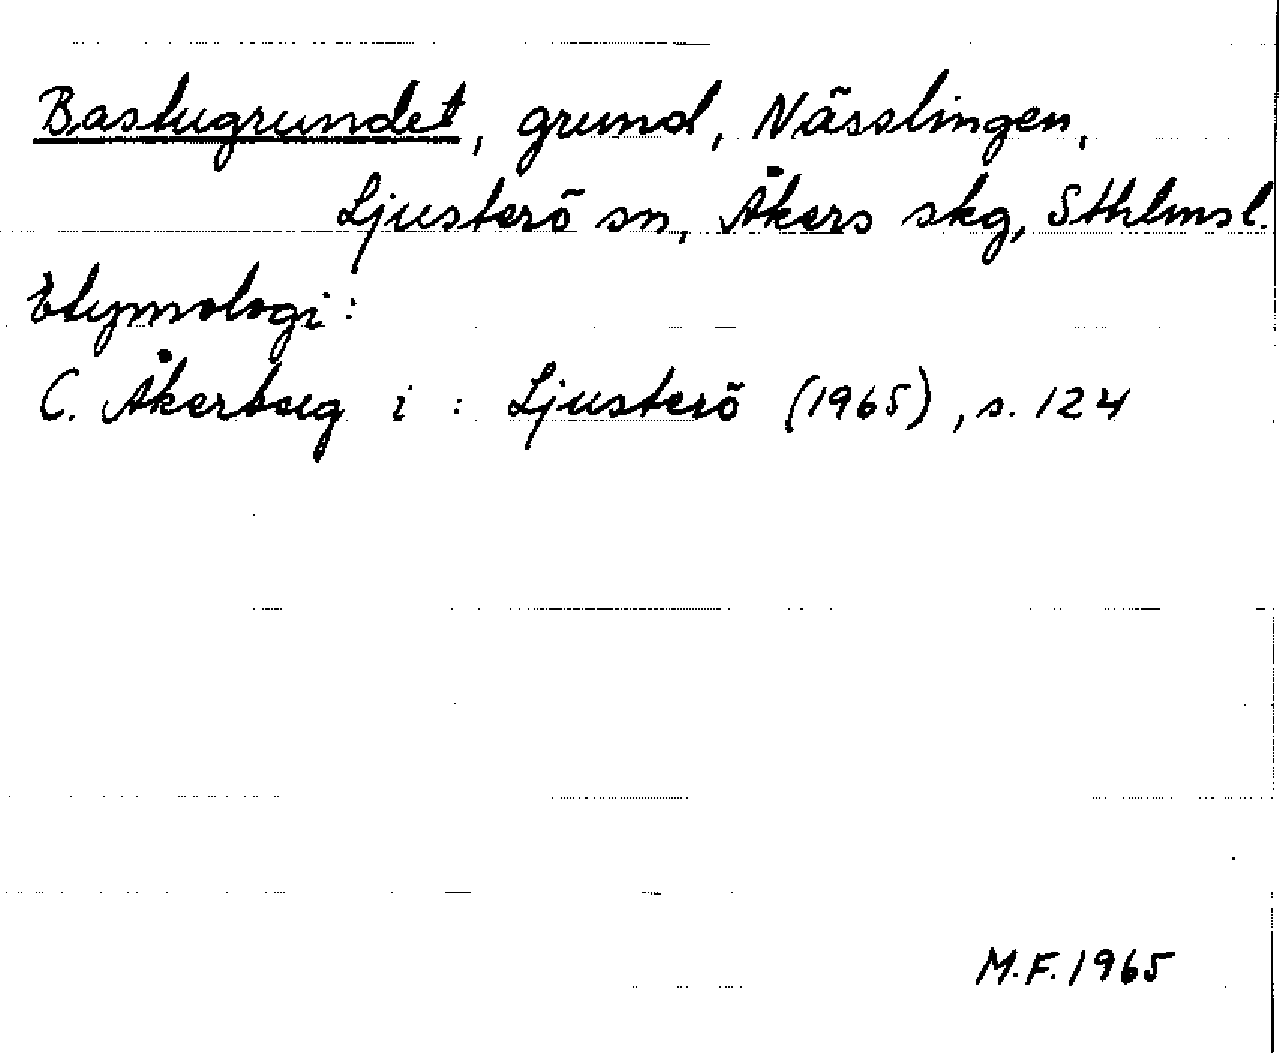 Bastugrundet, grund, Nässlingen,
Ljusterö sn, Åkers skg, Sthlmsl.
Etymologi:
C. Åkerhag i : Ljusterö (1965), s. 124
M.F. 1965